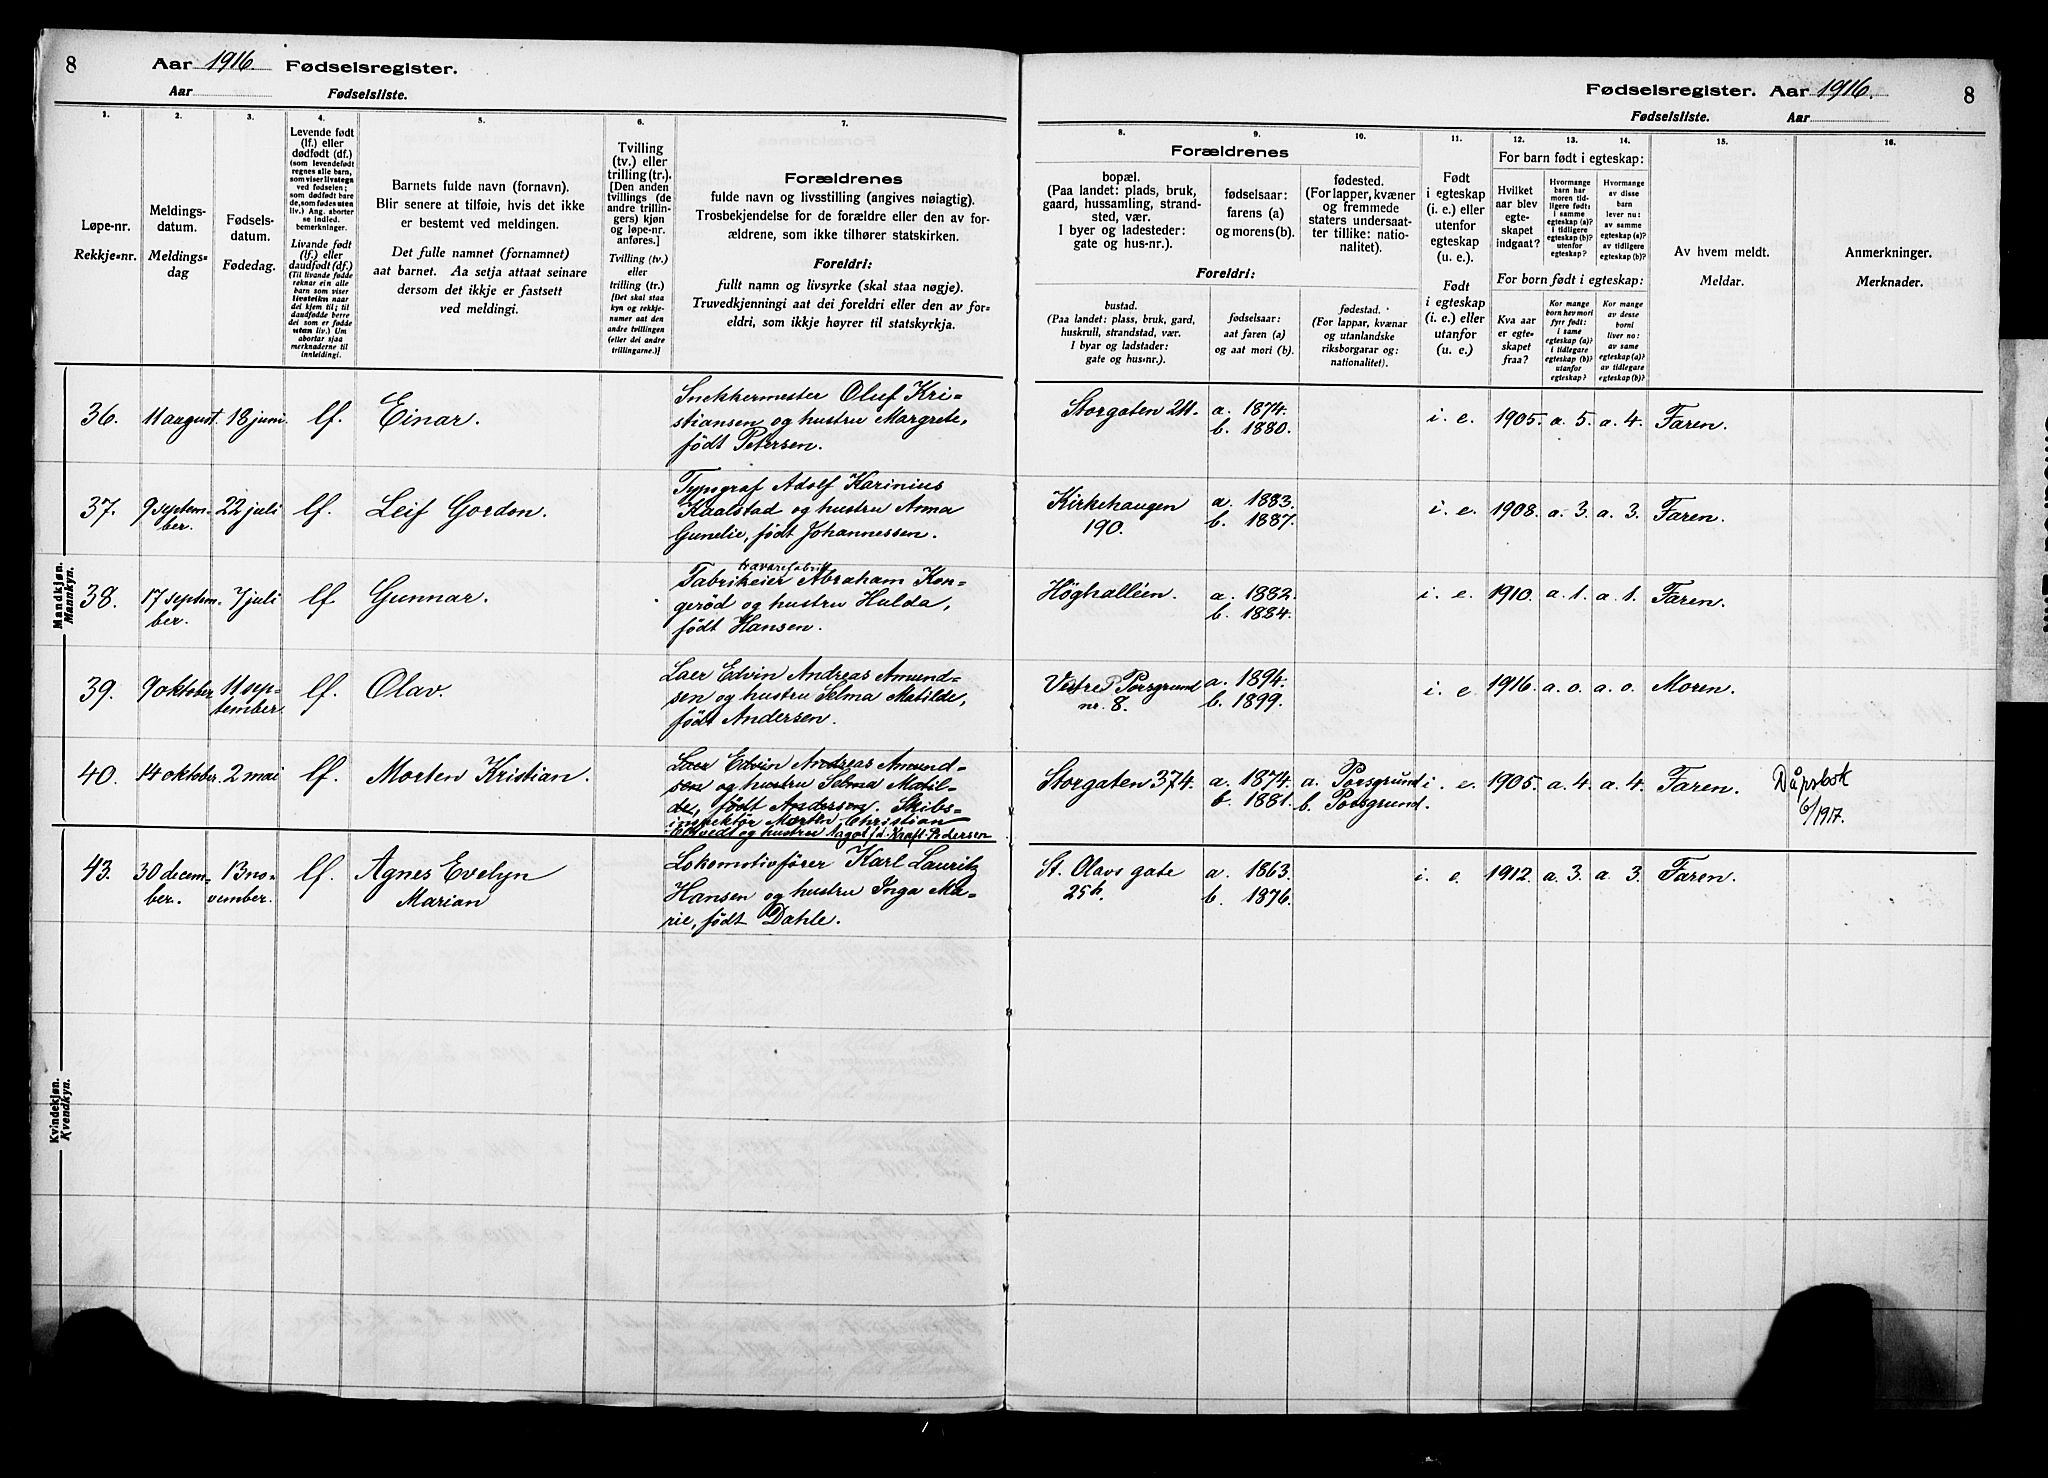 8 Aar 1916. Fødselsregister.
Aar Fødselsliste.
Fødselsregister. Aar 1916. 8
Fødselsliste. Aar
1. 2. 3. 4. 5. 6. 7.
Løpe-nr.
Rekkje-nr.
Meldings-
datum.
Meldings-
dag
Fødsels-
datum.
Fødedag.
Levende født
(lf.) eller
dødfødt (df.)
(som levendefødt
regnes alle barn,
som viser livstegn
ved fødselen;
som dødfødt bare
de, som fødes uten
liv.) Ang. aborter
se indled.
bemerkninger.
Livande født
(lf.) eller
daudfødt (df.)
(Til livande fødde
reknar ein alle
born som viser
livsteikn naar
dei kjem til; til
daudfødde berre
dei som er fødde
utan liv.) Um
abortar sjaa
merknaderne til
innleidingi.
Barnets fulde navn (fornavn).
Blir senere at tilføie, hvis det ikke
er bestemt ved meldingen.
Det fulle namnet (fornamnet)
aat barnet. Aa setja attaat seinare
dersom det ikkje er fastsett
ved meldingi.
Tvilling
(tv.) eller
trilling (tr.).
[Den anden
tvillings (de
andre trillin-
gers) kjøn
og løpe-nr.
anføres.]
Tvilling (tv.)
eller
trilling (tr.)
[Det skal staa
kyn og rekkje-
numer aat den
andre tvillingen
(eller dei andre
trillingarne.)]
Forældrenes
fulde navn og livsstilling (angives nøiagtig).
Trosbekjendelse for de forældre eller den av for-
ældrene, som ikke tilhører statskirken.
Foreldri:
fullt namn og livsyrke (skal staa nøgje).
Truvedkjenningi aat dei foreldri eller den av for-
eldri, som ikkje høyrer til statskyrkja.
8. 9. 10. 11. 12. 13. 14. 15. 16.
Forældrenes
bopæl.
(Paa landet: plads, bruk,
gaard, hussamling, strand-
sted, vær.
I byer og ladesteder:
gate og hus-nr.).
fødselsaar:
farens (a)
og morens (b).
fødested.
(For lapper, kvæner
og fremmede
staters undersaat-
ter tillike: natio-
nalitet).
Foreldri:
bustad.
(Paa landet: plass, bruk, gard,
huskrull, strandstad, vær.
I byar og ladstader:
gate og hus-nr.).
fødselsaar:
aat faren (a)
og aat mori (b).
fødestad.
(For lappar, kvænar
og utanlandske
riksborgarar og:
nationalitet).
Født
i egteskap
(i. e.) eller
utenfor
egteskap
(u. e.).
Født
i egteskap
(i. e.) eller
utanfor
(u. e.)
For barn født i egteskap:
Hvilket
aar blev
egte-
skapet
indgaat?
Hvormange
barn har
moren tid-
ligere født:
i samme
egteskap (a)?
i tidligere
egteskap (b)?
utenfor
egteskap?
Hvormange
av disse
barn
lever nu:
av samme
egteskap (a)?
av tidligere
egteskap (b)?
For born født i egteskap:
Kva aar
er egte-
skapet
fraa?
Kor mange
born hev mori
fyrr født:
i same
egteskap (a)?
i tidlegare
egteskap (b)?
utanfor
egteskap?
Kor mange
av desse
borni
liver no:
av same
egteskap (a)?
av tidlegare
egteskap (b)?
Av hvem meldt.
Meldar.
Anmerkninger.
Merknader.
Mandkjøn.
Mannkyn.
36. 11 august. 18 juni. lf. Einar. Snekkermester Oluf Kri-
stiansen og hustru Margrete,
født Petersen.
Storgaten 211. a. 1874.
b. 1880. i. e. 1905. a. 5. a. 4. Faren.
37. 9 septem-
ber. 22 juli lf. Leif Gordon. Typograf Adolf Karinius
Kaalstad og hustru Anna
Gunelie, født Johannessen.
Kirkehaugen
190. a. 1883.
b. 1887. i. e. 1908. a. 3. a. 3. Faren.
38. 17 septem-
ber. 7 juli lf. Gunnar. trævarefabrik
Fabrikeier Abraham Kon-
gerød og hustru Hulda,
født Hansen.
Höghalléen. a. 1882.
b. 1884. i. e. 1910. a. 1. a. 1. Faren.
39. 9 oktober. 11 sep-
tember. lf. Olav. Laer Edvin Andreas Amund-
sen og hustru Selma Matilde,
født Andersen.
Vestre Porsgrund
nr. 8. a. 1894.
b. 1899. i. e. 1916. a. 0. a. 0. Moren.
40. 14 oktober. 2 mai lf. Morten Kristian. Laer Edvin Andreas Amund-
sen og hustru Selma Matil-
de, født Andersen. Skibs-
inspektør Morten Christian
og hustru Aagot f.d. Kraft-Pedersen
Storgaten 374. a. 1874. a. Porsgrund
b. 1881. b. Porsgrund. i. e. 1905. a. 4. a. 4. Faren. Dåpsbok
6/1917.
Kvindekjøn.
Kvendkyn.
43. 30 decem-
ber. 13 no-
vember. lf. Agnes Evelyn
Marian
Lokomotivfører Karl Lauritz
Hansen og hustru Inga Ma-
rie, født Dahle.
St. Olavs gate
25b. a. 1863.
b. 1876. i. e. 1912. a. 3. a. 3. Faren.